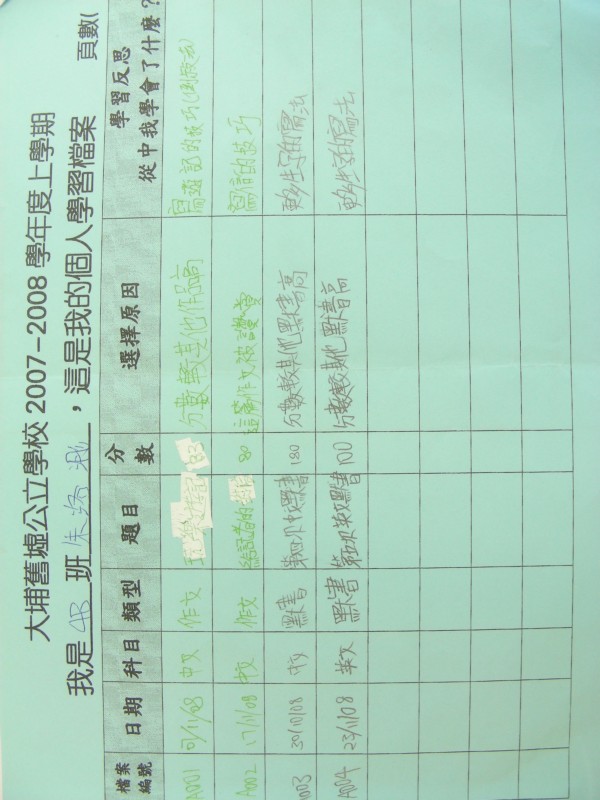 大埔舊墟公立學校 2007-2008 學年度上學期
我是 4B 班，這是我的個人學習檔案 頁數(
檔案編號 日期 科目 類型 題目 分數 選擇原因 學習反思 從中我學會了什麼？
A001 /11/08 中文 作文 遊記 83 分數較其他作品高 寫遊記的技巧
A002 17/11/08 中文 作文 給記者的 80 這篇作文被讚賞 寫信的技巧
A003 30/10/08 中文 默書 第四次中文默書 180 分數較其他默書高 更多生字的寫法
A004 23/11/08 英文 默書 第五次英文默書 100 分數較其他默書高 更多生字的寫法